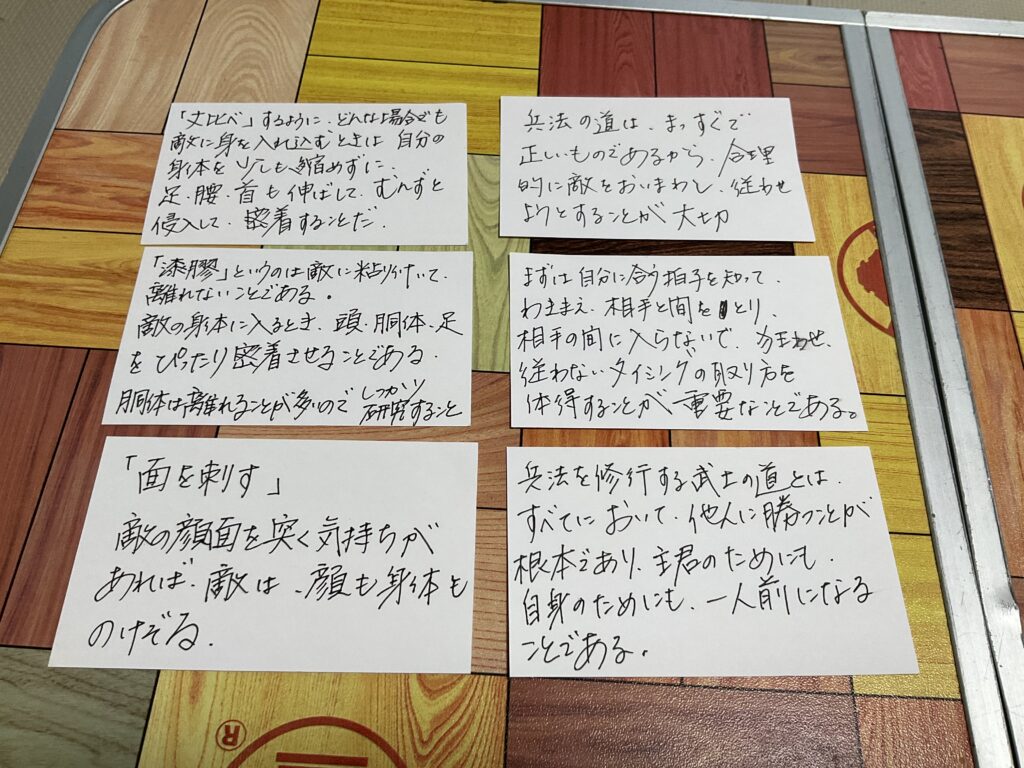 「丈比べ」するように、どんな場合でも
敵に身を入れ込むときは 自分の
身体を少しも縮めずに、
足、腰、首も伸ばして、むんずと
侵入して、密着することだ.
兵法の道は、まっすぐで
正しいものであるから、合理
的に敵をおいまわし、従わせ
ようとすることが 大切
「漆膠」というのは敵に粘り付いて、
離れないことである。
敵の身体に入るとき、頭、胴体、足
を ぴったり密着させることである.
胴体は離れることが多いので しっかり
研究すること
まずは自分に合う拍子を知って、
わきまえ、相手と間をとり、
相手の間に入らないで、狂わせ、
従わないタイミングの取り方を
体得することが 重要なことである。
「面を刺す」
敵の顔面を突く気持ちが
あれば、敵は、顔も身体も
のけぞる.
兵法を修行する武士の道とは、
すべてにおいて、他人に勝つことが
根本であり、主君のためにも、
自身のためにも、一人前になる
ことである。
®